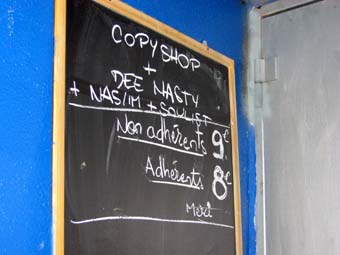 COPYSHOP
+
DEE NASTY
+ NAS/IM + SOULIST
Non adhérents 9€
Adhérents 8€
Merci